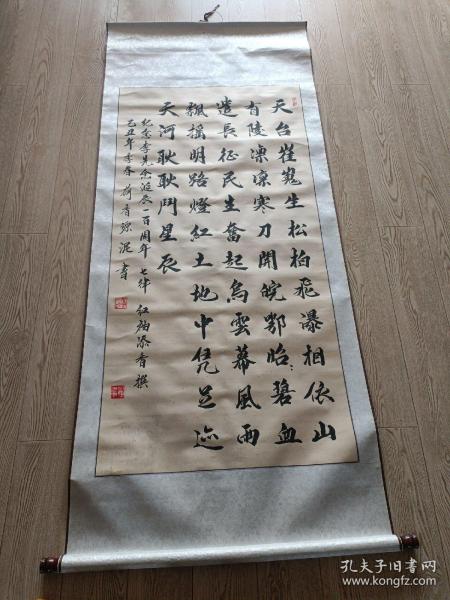 天台崔嵬生松柏飛瀑相依山
有陵凜凜寒刀開皖鄂昭〻碧血
遣長征民生奮起烏雲幕風雨
飄搖明路燈紅土地中凭足迹
天河耿耿鬥星辰
纪念李先念诞辰一百周年 七律 红袖添香撰
己丑年季春 荷香 泥書
孔夫子旧书网
www.kongfz.com